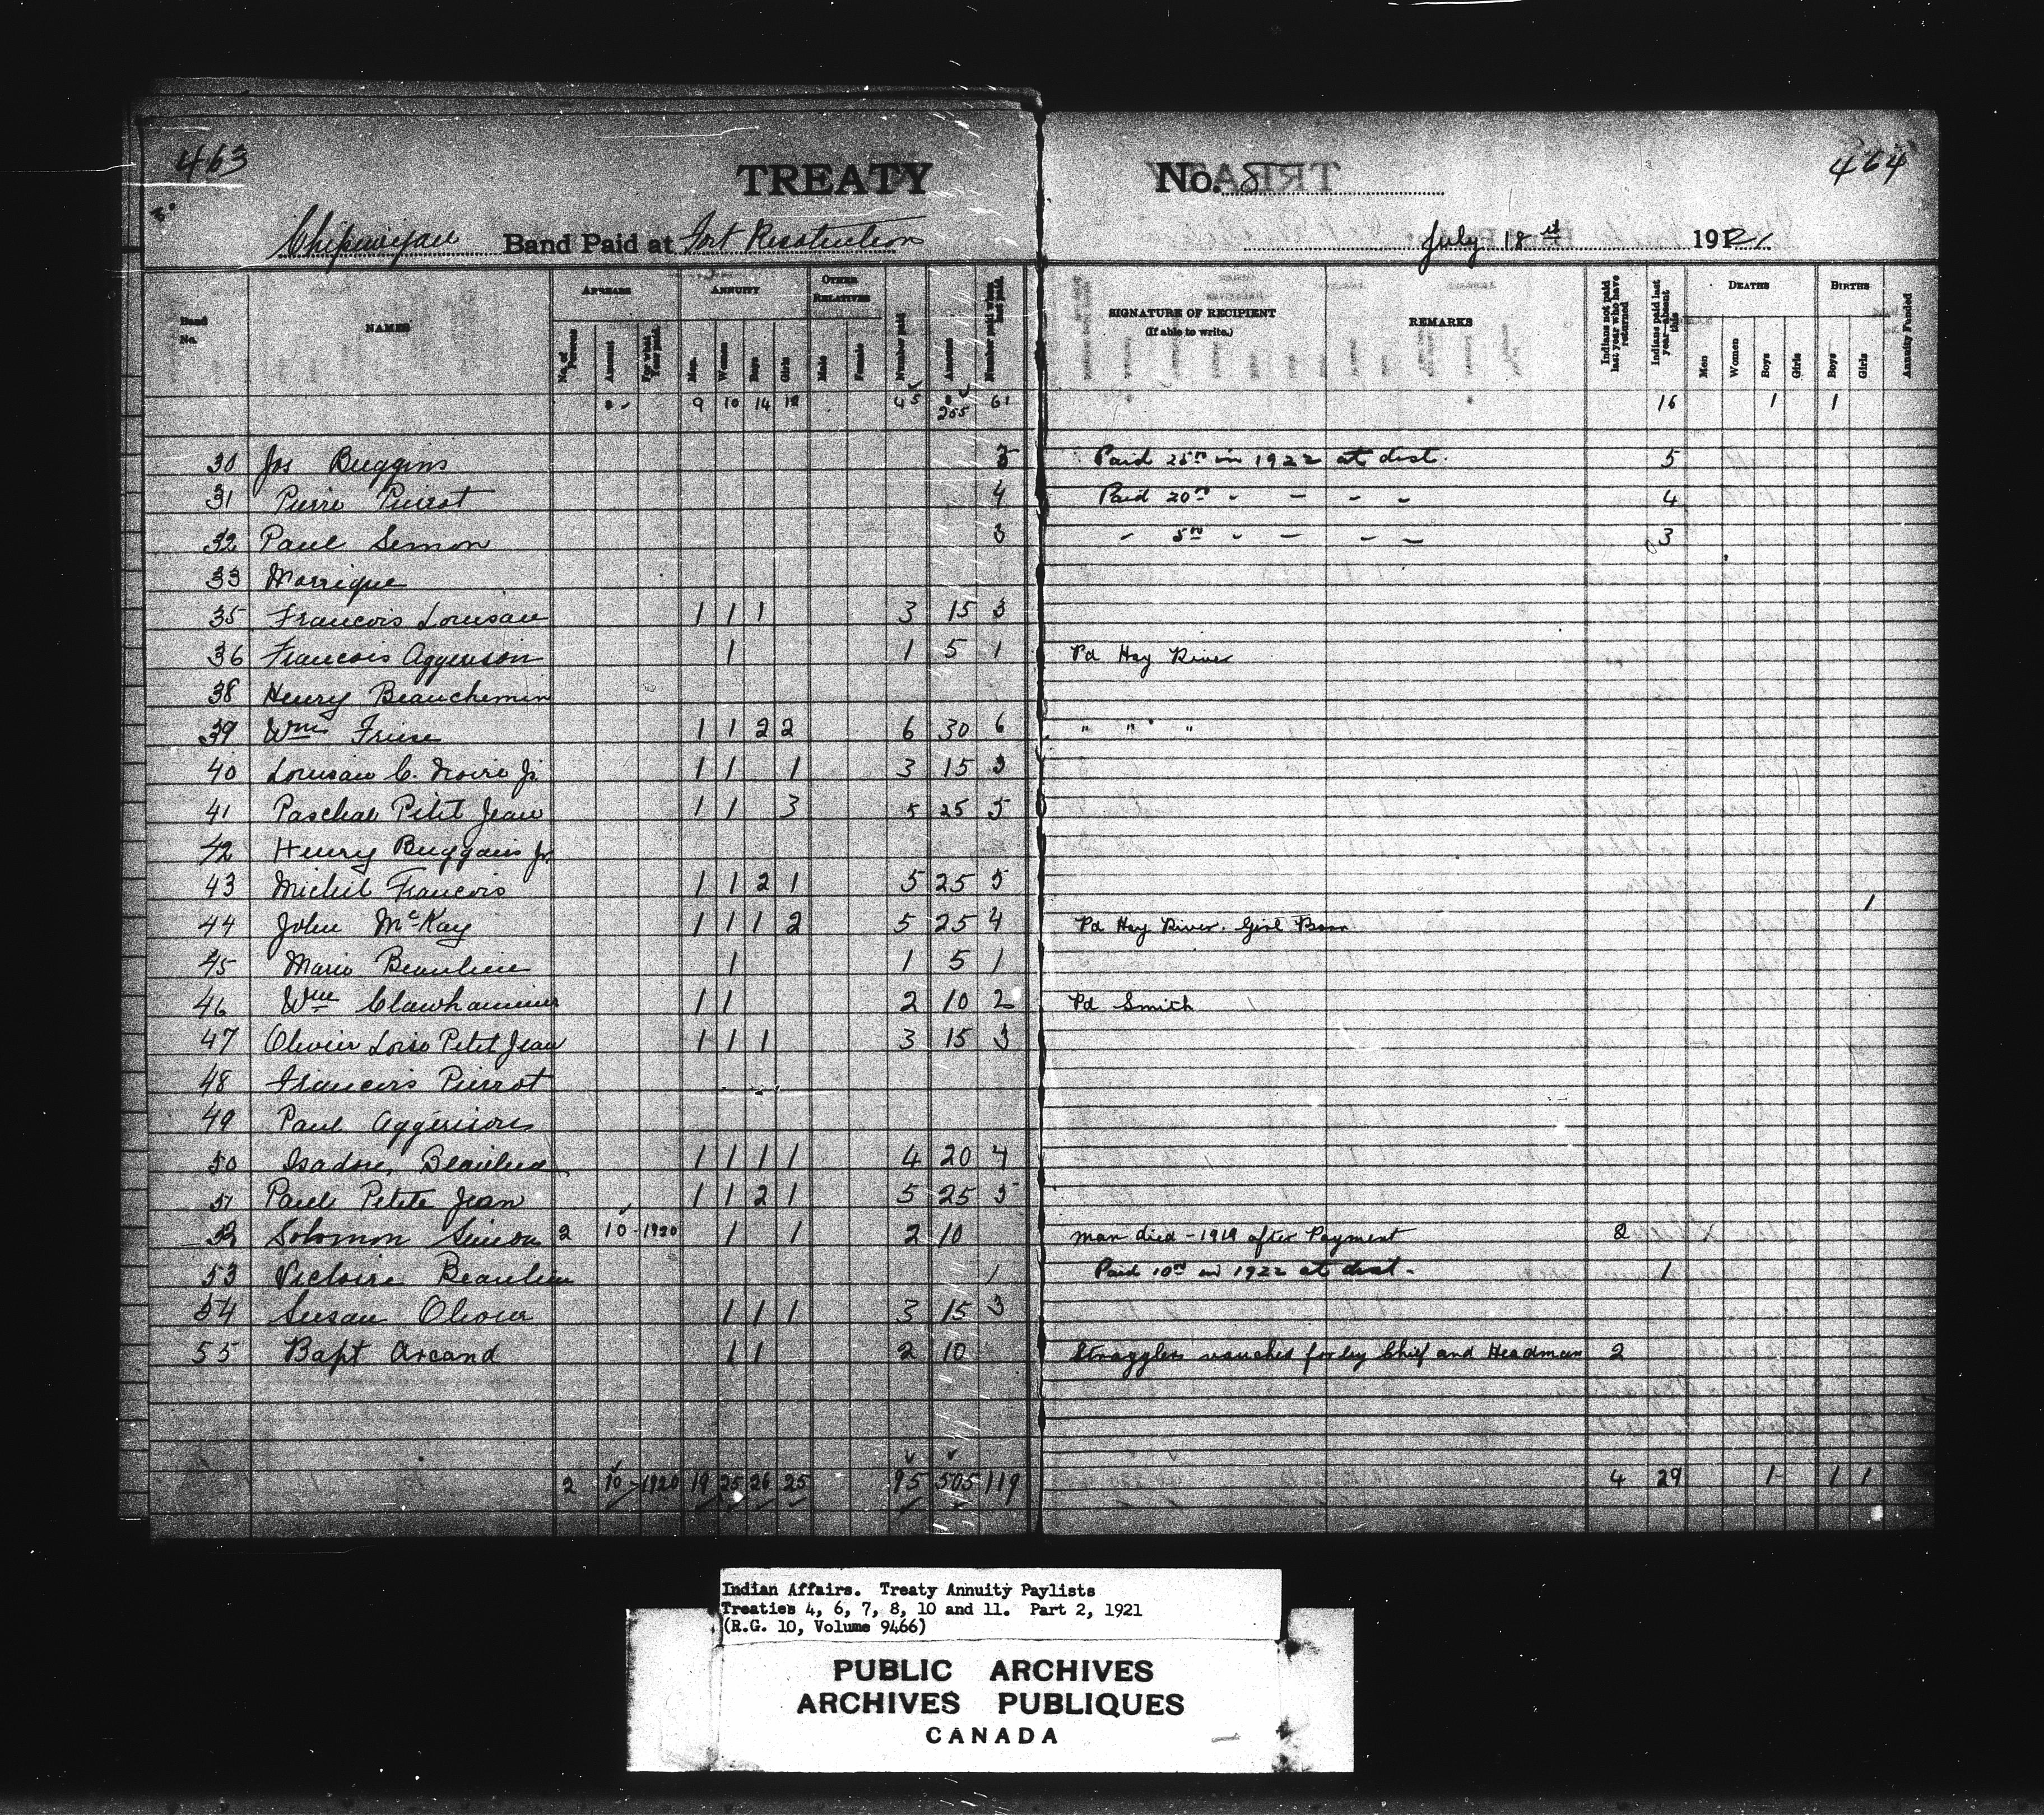 463
TREATY No. 8 464
Chipewyan Band Paid at Fort Resolution July 18th 1921
Band No. NAMES ARREARS ANNUITY OTHER RELATIVES SIGNATURE OF RECIPIENT (If able to write.) REMARKS DEATHS BIRTHS
No. of Persons Amount For what Year paid. Men. Women Boys Girls Male Female Number paid Amount Number paid when last paid. Indians not paid last year who have returned Indians paid last year—absent this Men Women Boys Girls Boys Girls Annuity Funded
9 10 14 12 45 255 61 16 1 1
30 Jos Buggins 5 Paid 25.00 in 1922 at dist. 5
31 Pierre Pierrot 4 Paid 20.00 " — — — 4
32 Paul Simon 3 — 5.00 — — — — 3
33 Marrique
35 Francois Louisan 1 1 1 3 15 3
36 Francois Aggerison 1 1 5 1 Pd Hay River
38 Henry Beauchemin
39 Wm Friese 1 1 2 2 6 30 6 " " "
40 Louisan C. Noire Jr 1 1 1 3 15 3
41 Paschal Petit Jean 1 1 3 5 25 5
42 Henry Buggins Jr
43 Michel Francois 1 1 2 1 5 25 5
44 John McKay 1 1 1 2 5 25 4 Pd Hay River. Girl Born 1
45 Marie Beaulieu 1 1 5 1
46 Wm Clawhammer 1 1 2 10 2 Pd Smith
47 Olivier Loiso Petit Jean 1 1 1 3 15 3
48 Francois Pierrot
49 Paul Aggerison
50 Isadore Beaulieu 1 1 1 1 4 20 4
51 Paul Petite Jean 1 1 2 1 5 25 5
52 Solomon Simon 2 10 - 1920 1 1 2 10 Man died - 1919 after Payment 2
53 Victoire Beaulieu 1 Paid 10.00 in 1922 at dist. 1
54 Susan Olivier 1 1 1 3 15 3
55 Bapt Arcand 1 1 2 10 Stragglers vouched for by Chief and Headman 2
2 10 - 1920 19 25 26 25 95 505 119 4 29 1 1 1
Indian Affairs. Treaty Annuity Paylists
Treaties 4, 6, 7, 8, 10 and 11. Part 2, 1921
(R.G. 10, Volume 9466)
PUBLIC ARCHIVES
ARCHIVES PUBLIQUES
CANADA